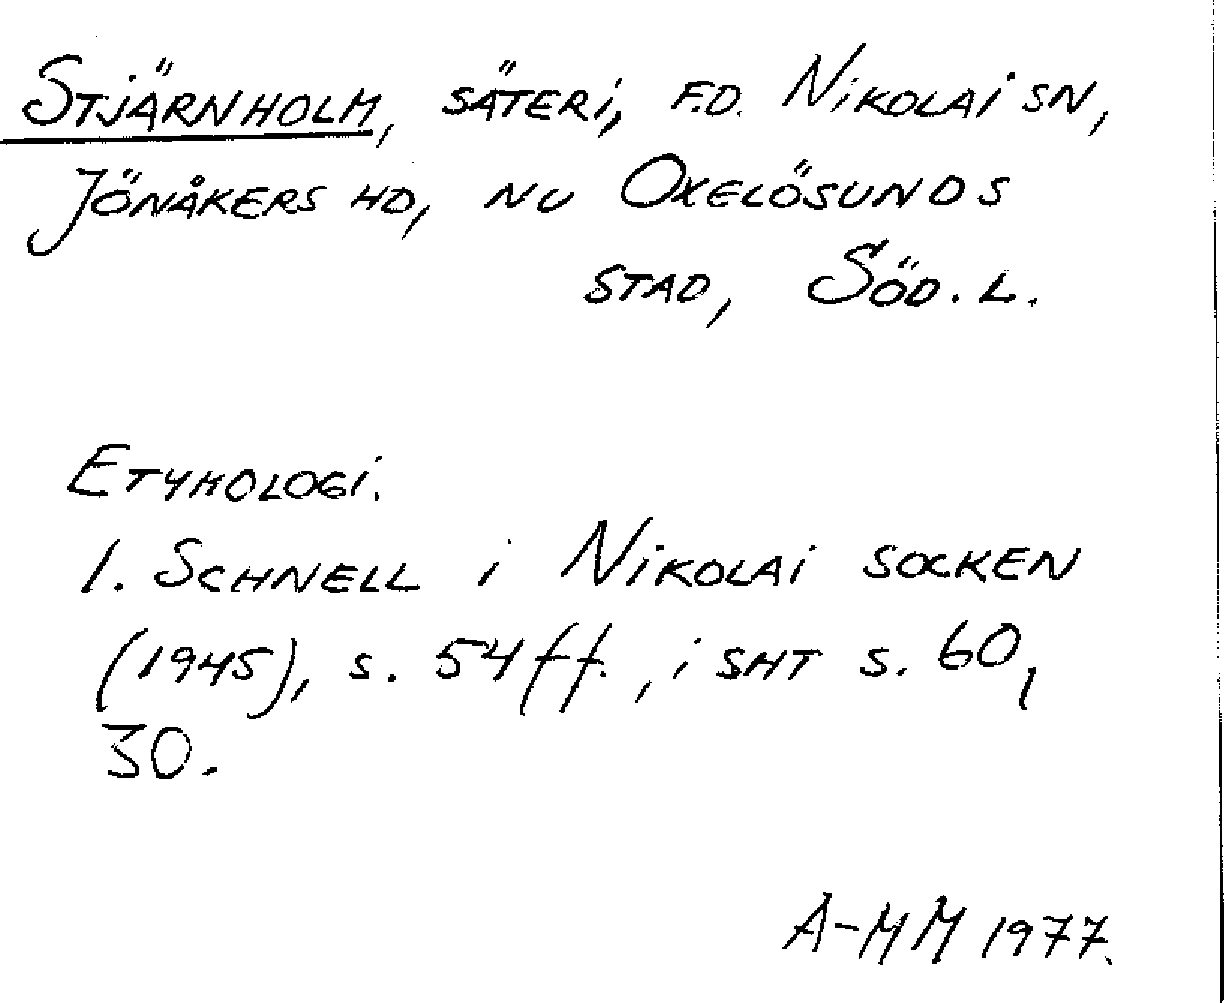 STJÄRNHOLM, SÄTERI, F.D. NIKOLAI SN,
JÖNÅKERS HD, NU OXELÖSUNDS
STAD, SÖD. L.
ETYMOLOGI.
1. SCHNELL i NIKOLAI SOCKEN
(1945), s. 54 ff., i SHT s. 60,
30.
A-MM 1977.